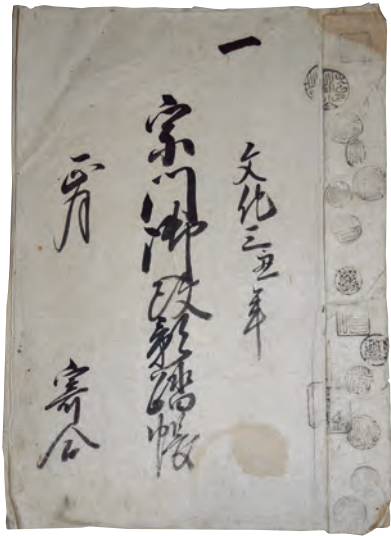 一
文化二丑年
宗門御改影踏帳
正月
寄合